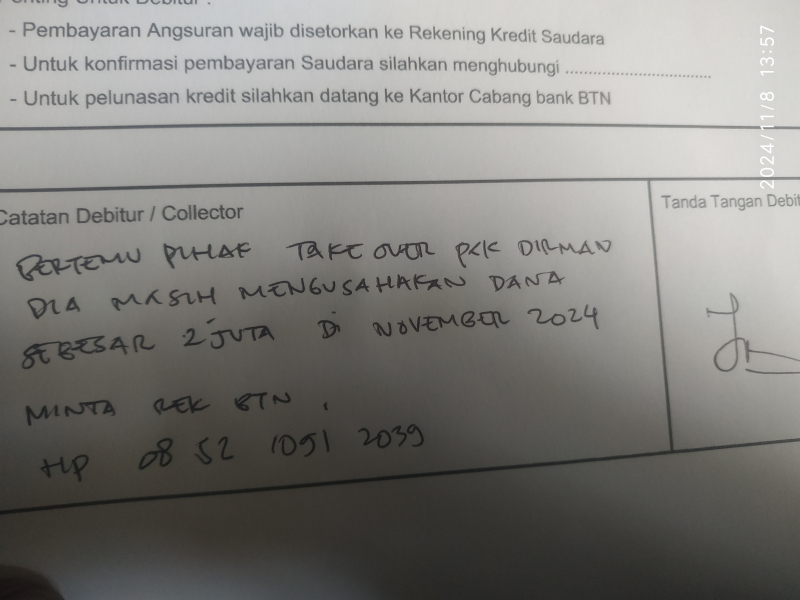 Penting Untuk Debitur :
- Pembayaran Angsuran wajib disetorkan ke Rekening Kredit Saudara
- Untuk konfirmasi pembayaran Saudara silahkan menghubungi ................................
- Untuk pelunasan kredit silahkan datang ke Kantor Cabang bank BTN
2024/11/8 13:57
Catatan Debitur / Collector
Tanda Tangan Debit
BERTEMU PIHAK TAKE OVER DIRMAN
DIA MASIH MENGUSAHAKAN DANA
SEBESAR 2 JUTA DI NOVEMBER 2024
MINTA REK BTN .
HP 08 52 1091 2039